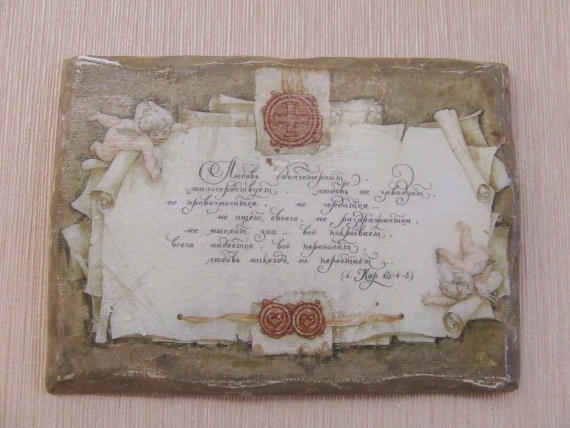 Любовь долготерпит,
милосердствует, любовь не завидует,
не превозносится, не гордится...
не ищет своего, не раздражается,
не мыслит зла... всё покрывает,
всего надеется, всё переносит,
любовь никогда не перестаёт
(1. Кор 13:4-8)